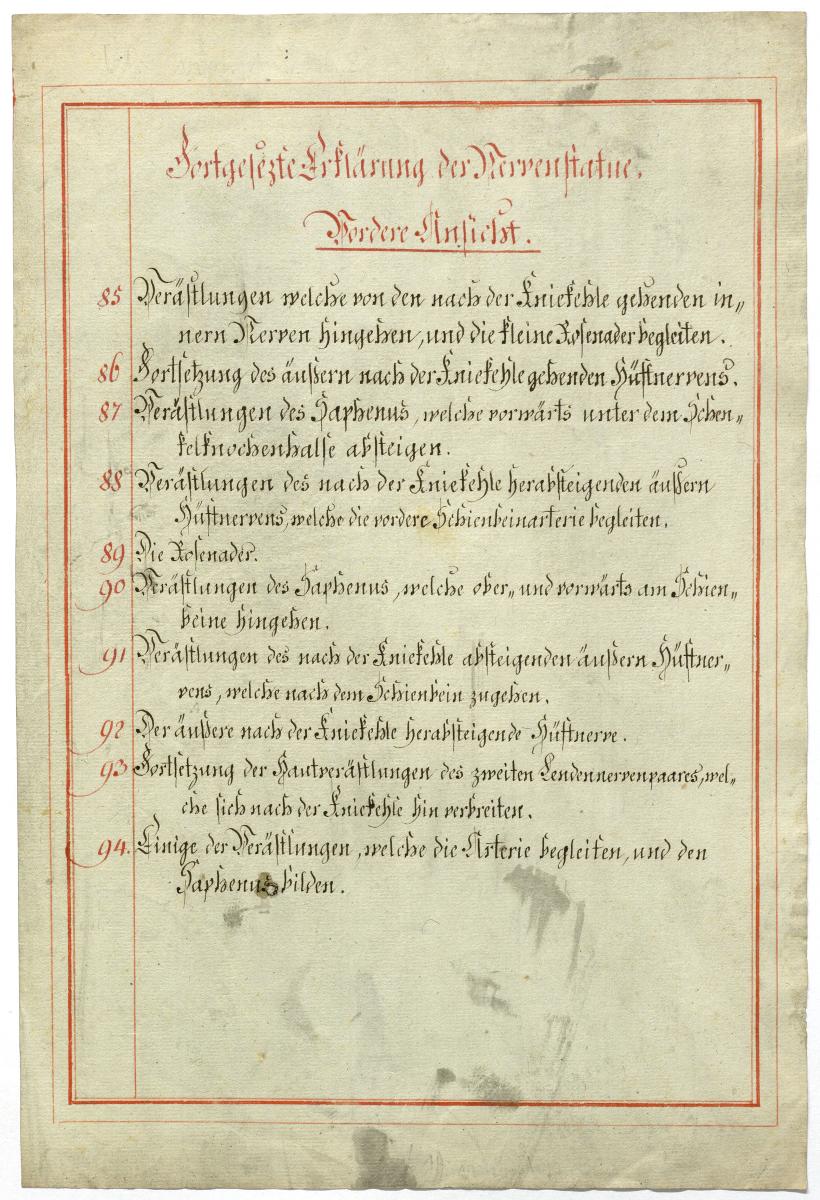 Fortgesezte Erklärung der Nervenstatue.
Vordere Ansicht.
85 Verästlungen welche von den nach der Kniekehle gehenden in„
nern Nerven hingehen, und die kleine Rosenader begleiten.
86 Fortsetzung des äußern nach der Kniekehle gehenden Hüftnervens.
87 Verästlungen des Saphenus, welche vorwärts unter dem Schen„
kelknochenhalse absteigen.
88 Verästlungen des nach der Kniekehle herabsteigenden äußern
Hüftnervens, welche die vordere Schienbeinarterie begleiten.
89 Die Rosenader.
90 Verästlungen des Saphenus, welche ober„ und vorwärts am Schien„
beine hingehen.
91 Verästlungen des nach der Kniekehle absteigenden äußern Hüftner„
vens, welche nach dem Schienbein zugehen.
92 Der äußere nach der Kniekehle herabsteigende Hüftnerve.
93 Fortsetzung der Hautverästlungen des zweiten Lendennervenpaares, wel„
che sich nach der Kniekehle hin verbreiten.
94. Einige der Verästlungen, welche die Arterie begleiten, und den
Saphenus bilden.